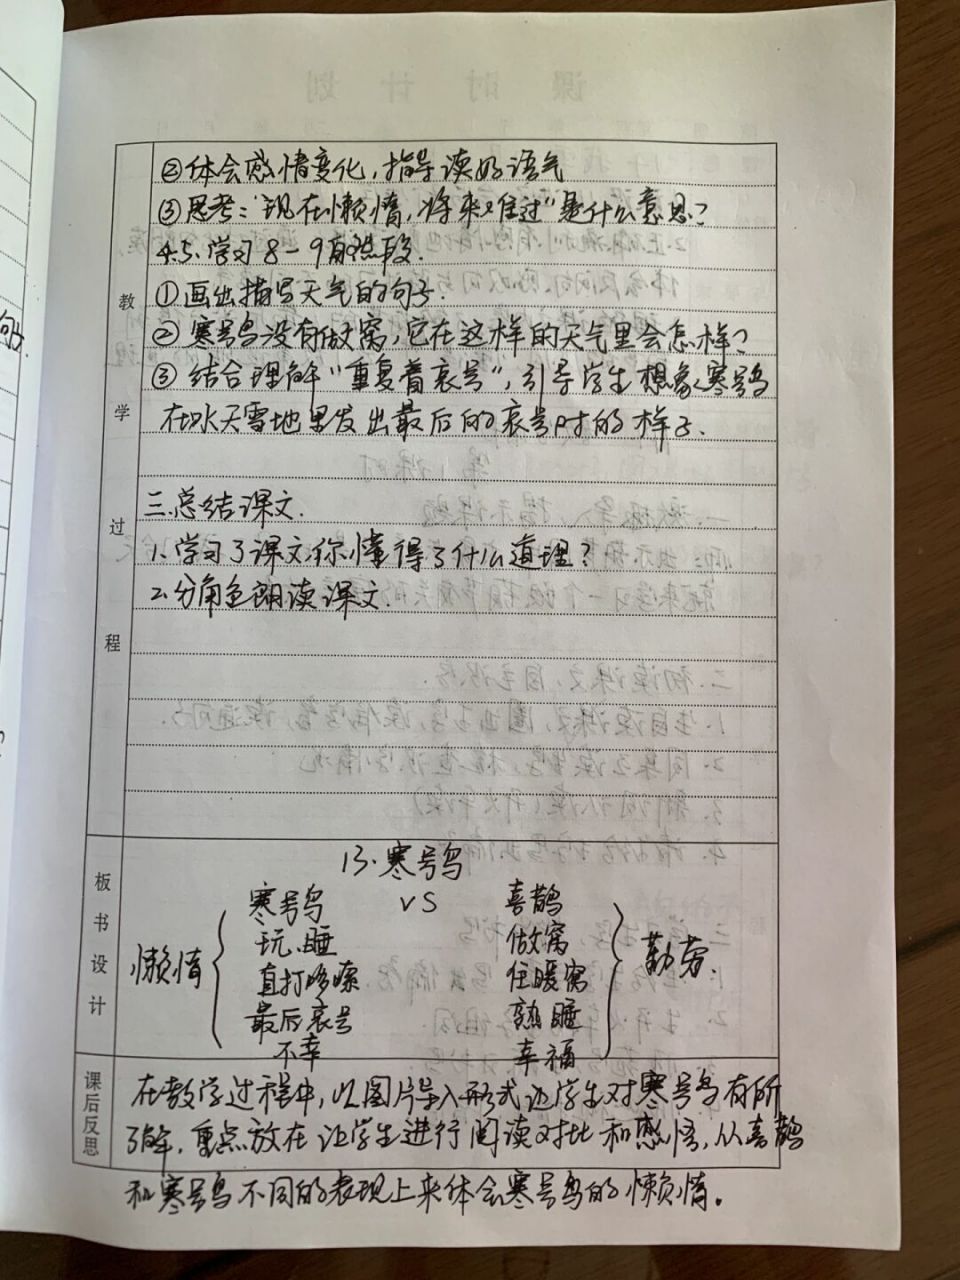 ②体会感情变化,指导读好语气
③思考:"现在懒惰,将来难过"是什么意思?
4.5.学习8-9自然段.
①画出描写天气的句子.
②寒号鸟没有做窝,它在这样的天气里会怎样?
③结合理解"重复着哀号",引导学生想象寒号鸟
在冰天雪地里发出最后的哀号时的样子.
三.总结课文.
1.学习了课文你懂得了什么道理?
2.分角色朗读课文.
教学过程
板书设计
13.寒号鸟
寒号鸟 VS 喜鹊
玩、睡 做窝
懒惰 直打哆嗦 住暖窝 勤劳.
最后哀号 熟睡
不幸 幸福
课后反思
在教学过程中,以图片导入形式让学生对寒号鸟有所
了解.重点放在让学生进行阅读对比和感悟,从喜鹊
和寒号鸟不同的表现上来体会寒号鸟的懒惰。